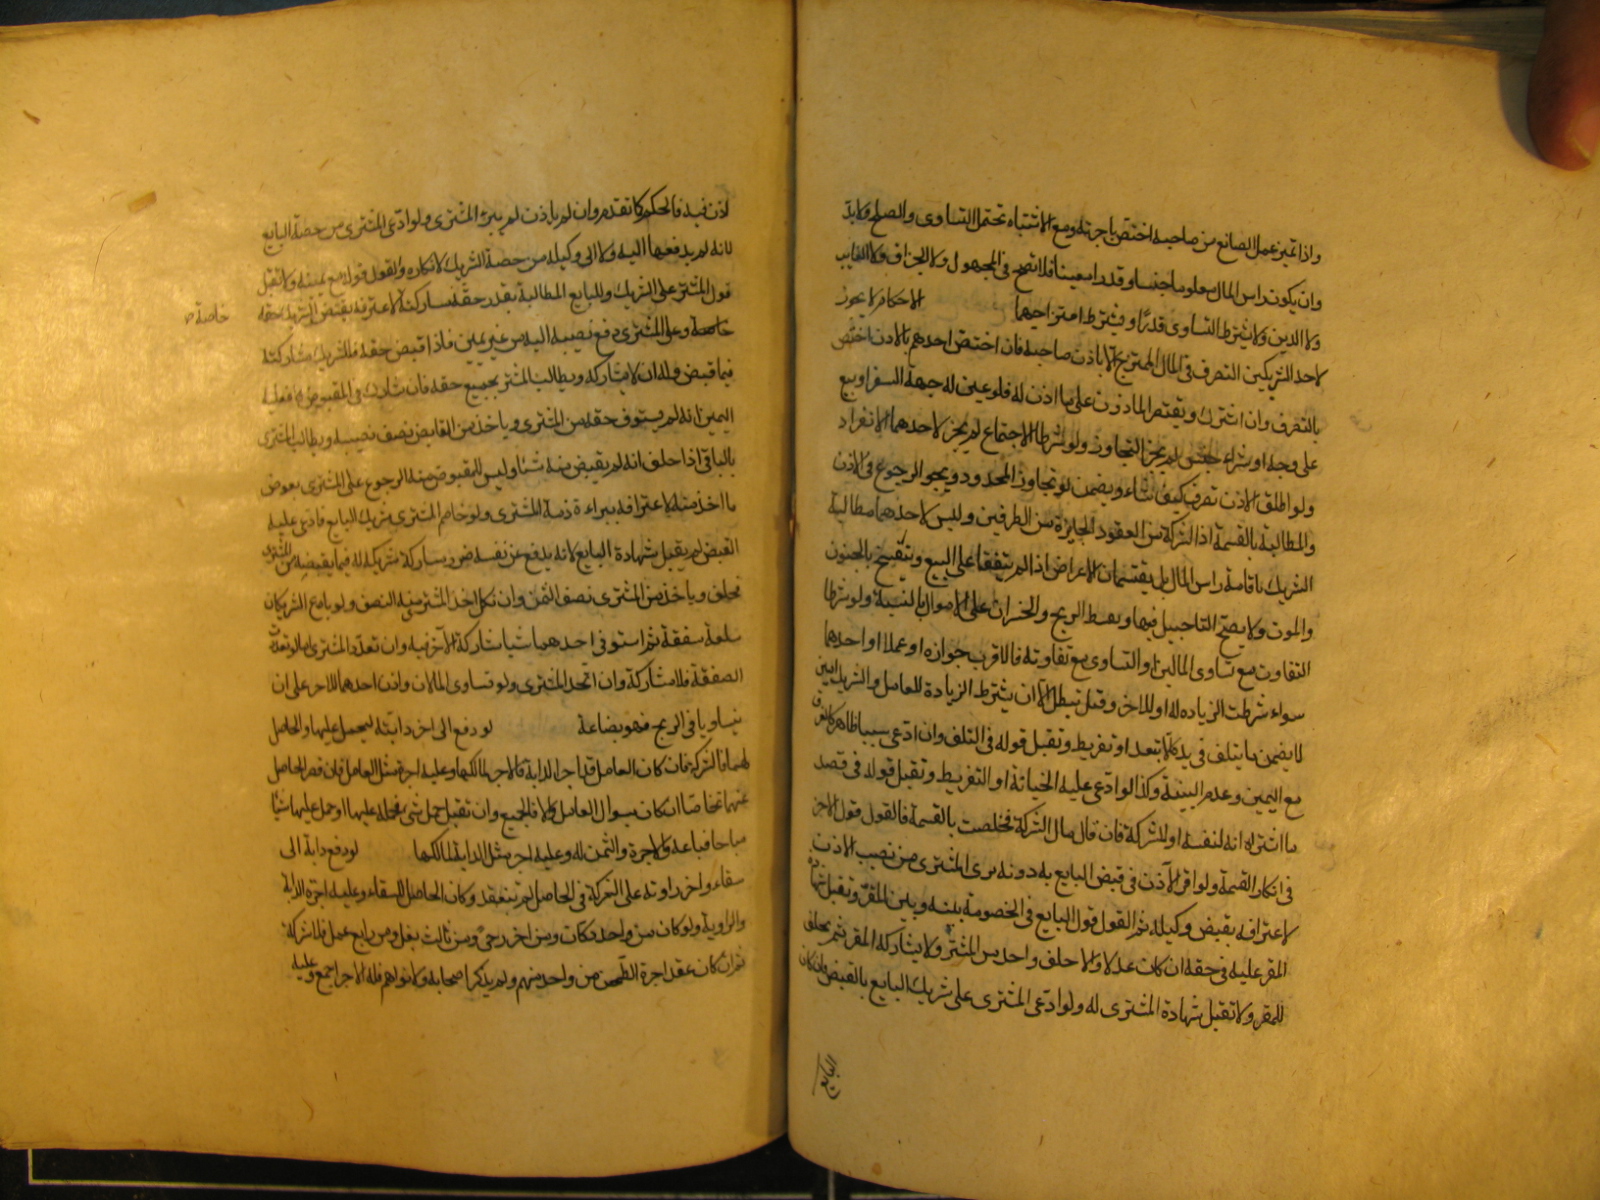 واذا تميز عمل الصانع من صاحبه اختص باجرته ومع الاشتباه تحتمل التساوى والصلح ولابد
وان يكون راس المال معلوما جنسا وقدرا معينا فلا تصح فى المجهول ولا الجزاف ولا الغايب
ولا الدين ولا يشترط التساوى قدرًا ويشترط امتزاجهما الاحكام لا يجوز
لاحد الشريكين التصرف فى المال الممتزج الا باذن صاحبه فان اختص احدهم بالاذن اختص
بالتصرف وان اشترك ويقتصر الماذون على ما اذن له فلو عين له جهة السفر او بيع
على وجه او شراء جنس لم يجز التجاوز ولو شرطا الاجتماع لم يجز لاحدهما الانفراد
ولو اطلق الاذن تصرف كيف شاء ويضمن لو تجاوز المحدود ويجوز الرجوع فى الاذن
والمطالبة بالقسمة اذ الشركة من العقود الجايزة من الطرفين وليس لاحدهما مطالبة
الشريك باقامة راس المال بل يقتسمان الاعراض اذا لم يتفقا على البيع وينفسخ بالجنون
والموت ولا يصح التاجيل فيها ويبسط الربح والخسران على الاموال بالنسبة ولو شرطا
التفاوت مع تساوى المالين او التساوى مع تفاوته فالاقرب جوازه ان عملا او احدهما
سواء شرطت الزياده له او للاخر وقيل تبطل الا ان يشترط الزيادة للعامل والشريك امين
لا يضمن ما يتلف فى يده الا بتعد او تفريط وتقبل قوله فى التلف وان ادعى سببا ظاهرا كالغرق
مع اليمين وعدم البينة وكذا لو ادعى عليه الخيانة او التفريط وتقبل قوله فى قصد
ما اشتراه انه لنفسه او للشركة فان قال مال الشركة فخلصت بالقسمة فالقول قول الاخر
فى انكار القسمة ولو اقر الآذن فى قبض البايع به دونه برى المشترى من نصيب الاذن
لاعترافه بقبض وكيله ثم القول قول البايع فى الخصومة بينه وبين المقر وتقبل شهادة
المقر عليه فى حقه ان كان عدلا والا حلف واخذ من المشتر ولا يشاركه المقر ثم يحلف
للمقر ولا تقبل شهادة المشترى له ولو ادعى المشترى على شريك البايع بالقبض فان كان
البايع
اذن فيه فالحكم كما تقدم وان لم ياذن لم يبرء المشترى ولو ادعى المشترى من حصة البايع
لانه لم يدفعها اليه ولا الى وكيله من حصة الشريك لانكاره والقول قوله مع يمينه ولا تقبل
قول المشتر على الشريك وللبايع المطالبة بقدر حقه لاعترافه بقبض الشريك حقه
خاصة وعلى المشترى دفع نصيبه اليه من غير يمين فاذا قبض حقه فللشريك مشاركته
خاصة
فيما قبض وله ان لا يشاركه ويطالب المشتر بجميع حقه فان شارك فى المقبوض فعليه
اليمين انه لم يستوف حقه من المشترى وياخذ من القابض نصف نصيبه ويطالب المشترى
بالباقى اذا حلف انه لم يقبض منه شيئا وليس للمقبوض منه الرجوع على المشترى بعوض
ما اخذ منه لاعترافه ببراءة ذمة المشترى ولو خاصم المشترى شريك البايع فادعى عليه
القبض لم يقبل شهادة البايع لانه يدفع عن نفسه ضرر مشاركة شريكه له فيما يقبضه من المشترى
فحلف وياخذ من المشترى نصف الثمن وان نكل اخذ المشتر منه النصف ولو باع الشريكان
سلعة صفقة ثم استوفى احدهما شيئا شاركه الآخر فيه وان تعدد المشترى اما لو تعددت
الصفقة فلا مشاركة وان اتحد المشترى ولو تساوى المالان واذن احدهما للاخر على ان
يتساويا فى الربح فهو بضاعة لو دفع الى اخر دابته ليحمل عليها والحاصل
لهما فالشركة فان كان العامل قد اجر الدابة فالاجر لمالكها وعليه اجرة مثل العامل فان قصر الحاصل
عنهما تحاصا ان كان بسوال العامل والا فالجميع وان تقبل حمل شى فحمله عليها او حمل عليها شيئا
مباحا فباعه فالاجرة والثمن له وعليه اجر مثل الدابة لمالكها لو دفع دابة الى
سقاء واخر راوية على الشركة فى الحاصل لم ينعقد وكان الحاصل للسقاء وعليه اجرة الدابة
والراوية ولو كان من واحد دكان ومن اخر رحى ومن ثالث بغل ومن رابع عمل فلا شركة
ثم ان كان عقد اجرة الطحن من واحد منهم ولم يذكر اصحابه ولا نواهم فله الاجر اجمع وعليه